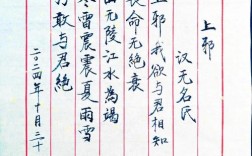 上邪
汉无名氏
上邪我欲与君相知
长命无绝衰
山无陵江水為竭
冬雷震震夏雨雪
乃敢与君絕
二〇二四年十月二十